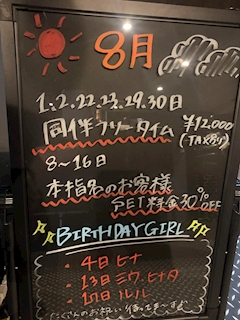 8月
1.2.22.23.29.30日
同伴フリータイム ¥12,000
(TAX別)
8～16日
本指名のお客様
SET料金30%OFF
BIRTHDAYGIRL
・4日ヒナ
・13日ミウ、ヒナタ
・17日ルル
たくさんのお祝い待ってまーす